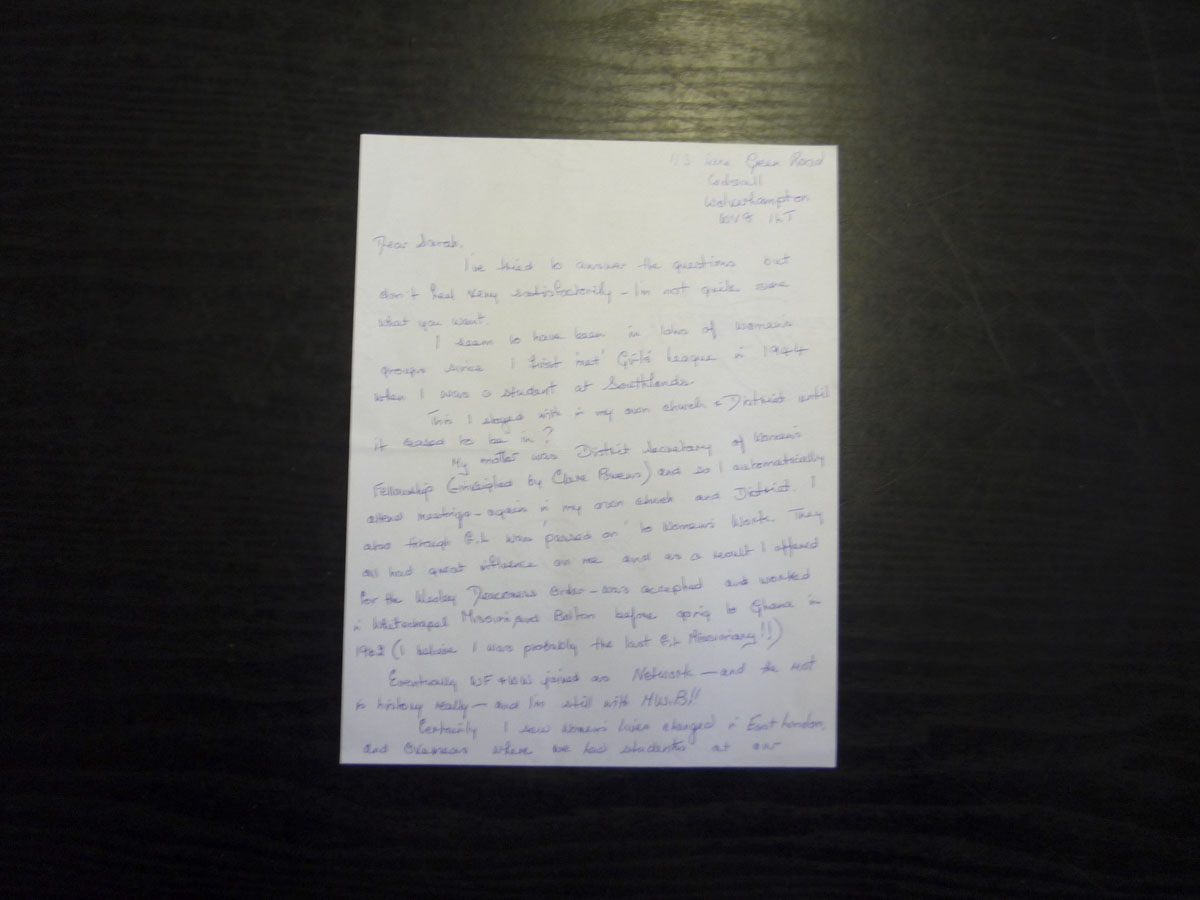 Green Road
Codsall
Wolverhampton
Dear Sarah,
I've tried to answer the questions but
don't feel very satisfactorily - I'm not quite sure
what you want.
I seem to have been in lots of Women's
groups since I first 'met' Girls' League in 1944
when I was a student at Southlands.
This I stayed with in my own church & District until
it ceased to be in ?
My mother was District Secretary of Women's
Fellowship (inveigled by Clare Powers) and so I automatically
attend meetings - again in my own church and District. I
also through G.L was 'passed on' to Women's Work. They
all had great influence on me and as a result I offered
for the Wesley Deaconess Order - was accepted and worked
in Whitechapel Mission, and Bolton before going to Ghana in
(I believe I was probably the last G.L Missionary!!)
Eventually WF & WW joined as Network - and the rest
is history really - and I'm still with MWiB!!
Certainly I saw Women's lives changed in East London,
and Overseas where we had students at our